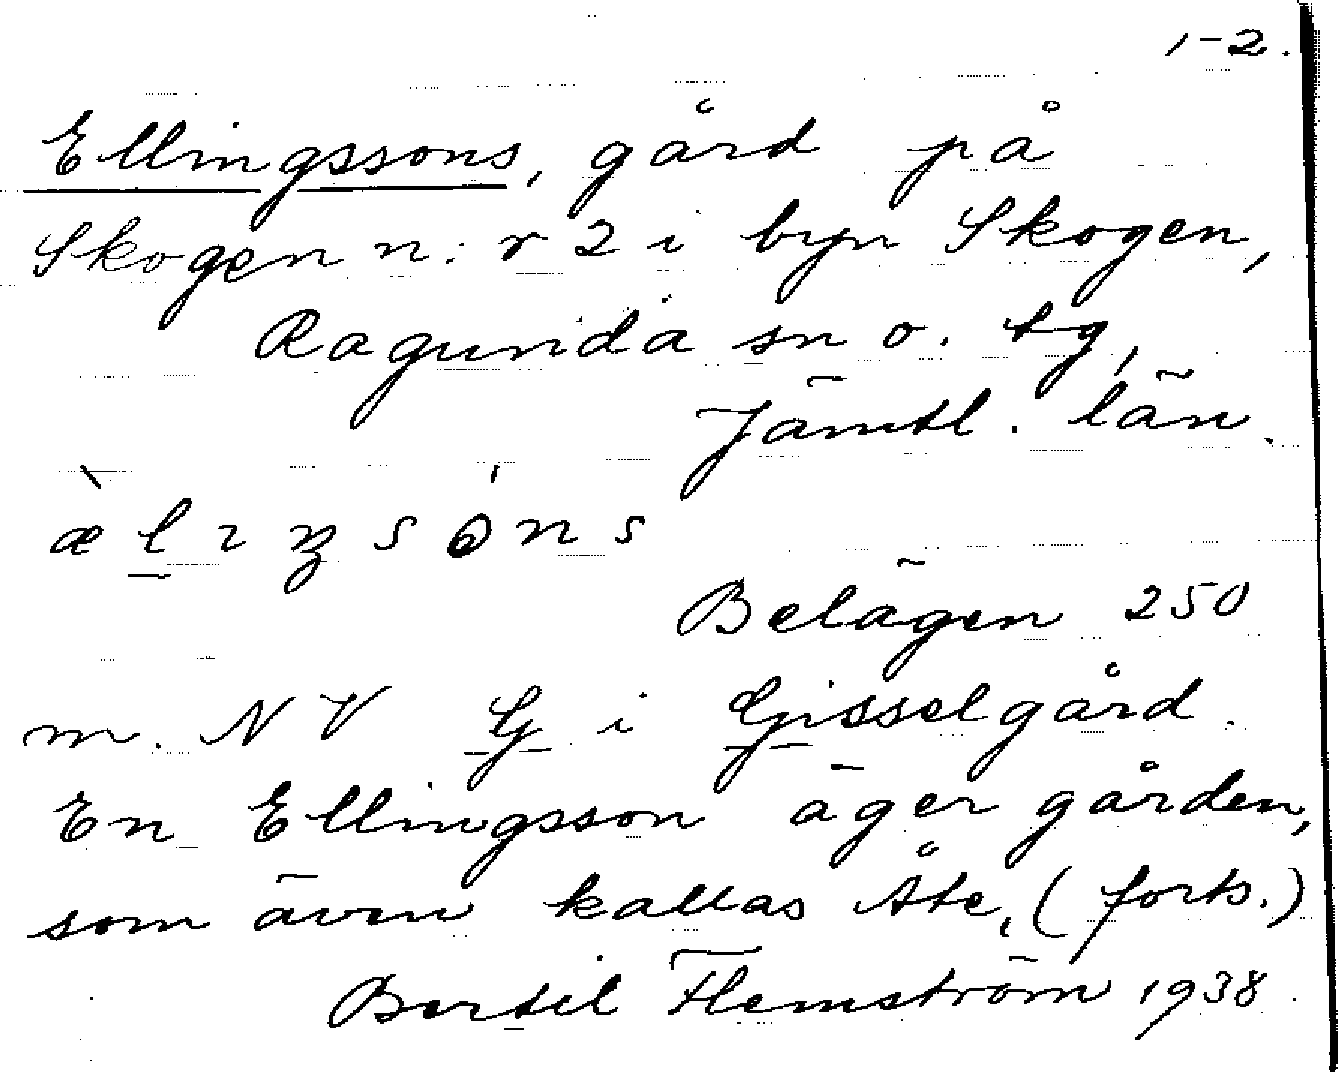 1-2.
Ellingssons, gård på
Skogen n:r 2 i byn Skogen,
Ragunda sn o. tg,
Jämtl. län.
Belägen 250
m. NV G i Gisselgård.
En Ellingsson äger gården,
som även kallas Åte. (forts.)
Bertil Flemström 1938.